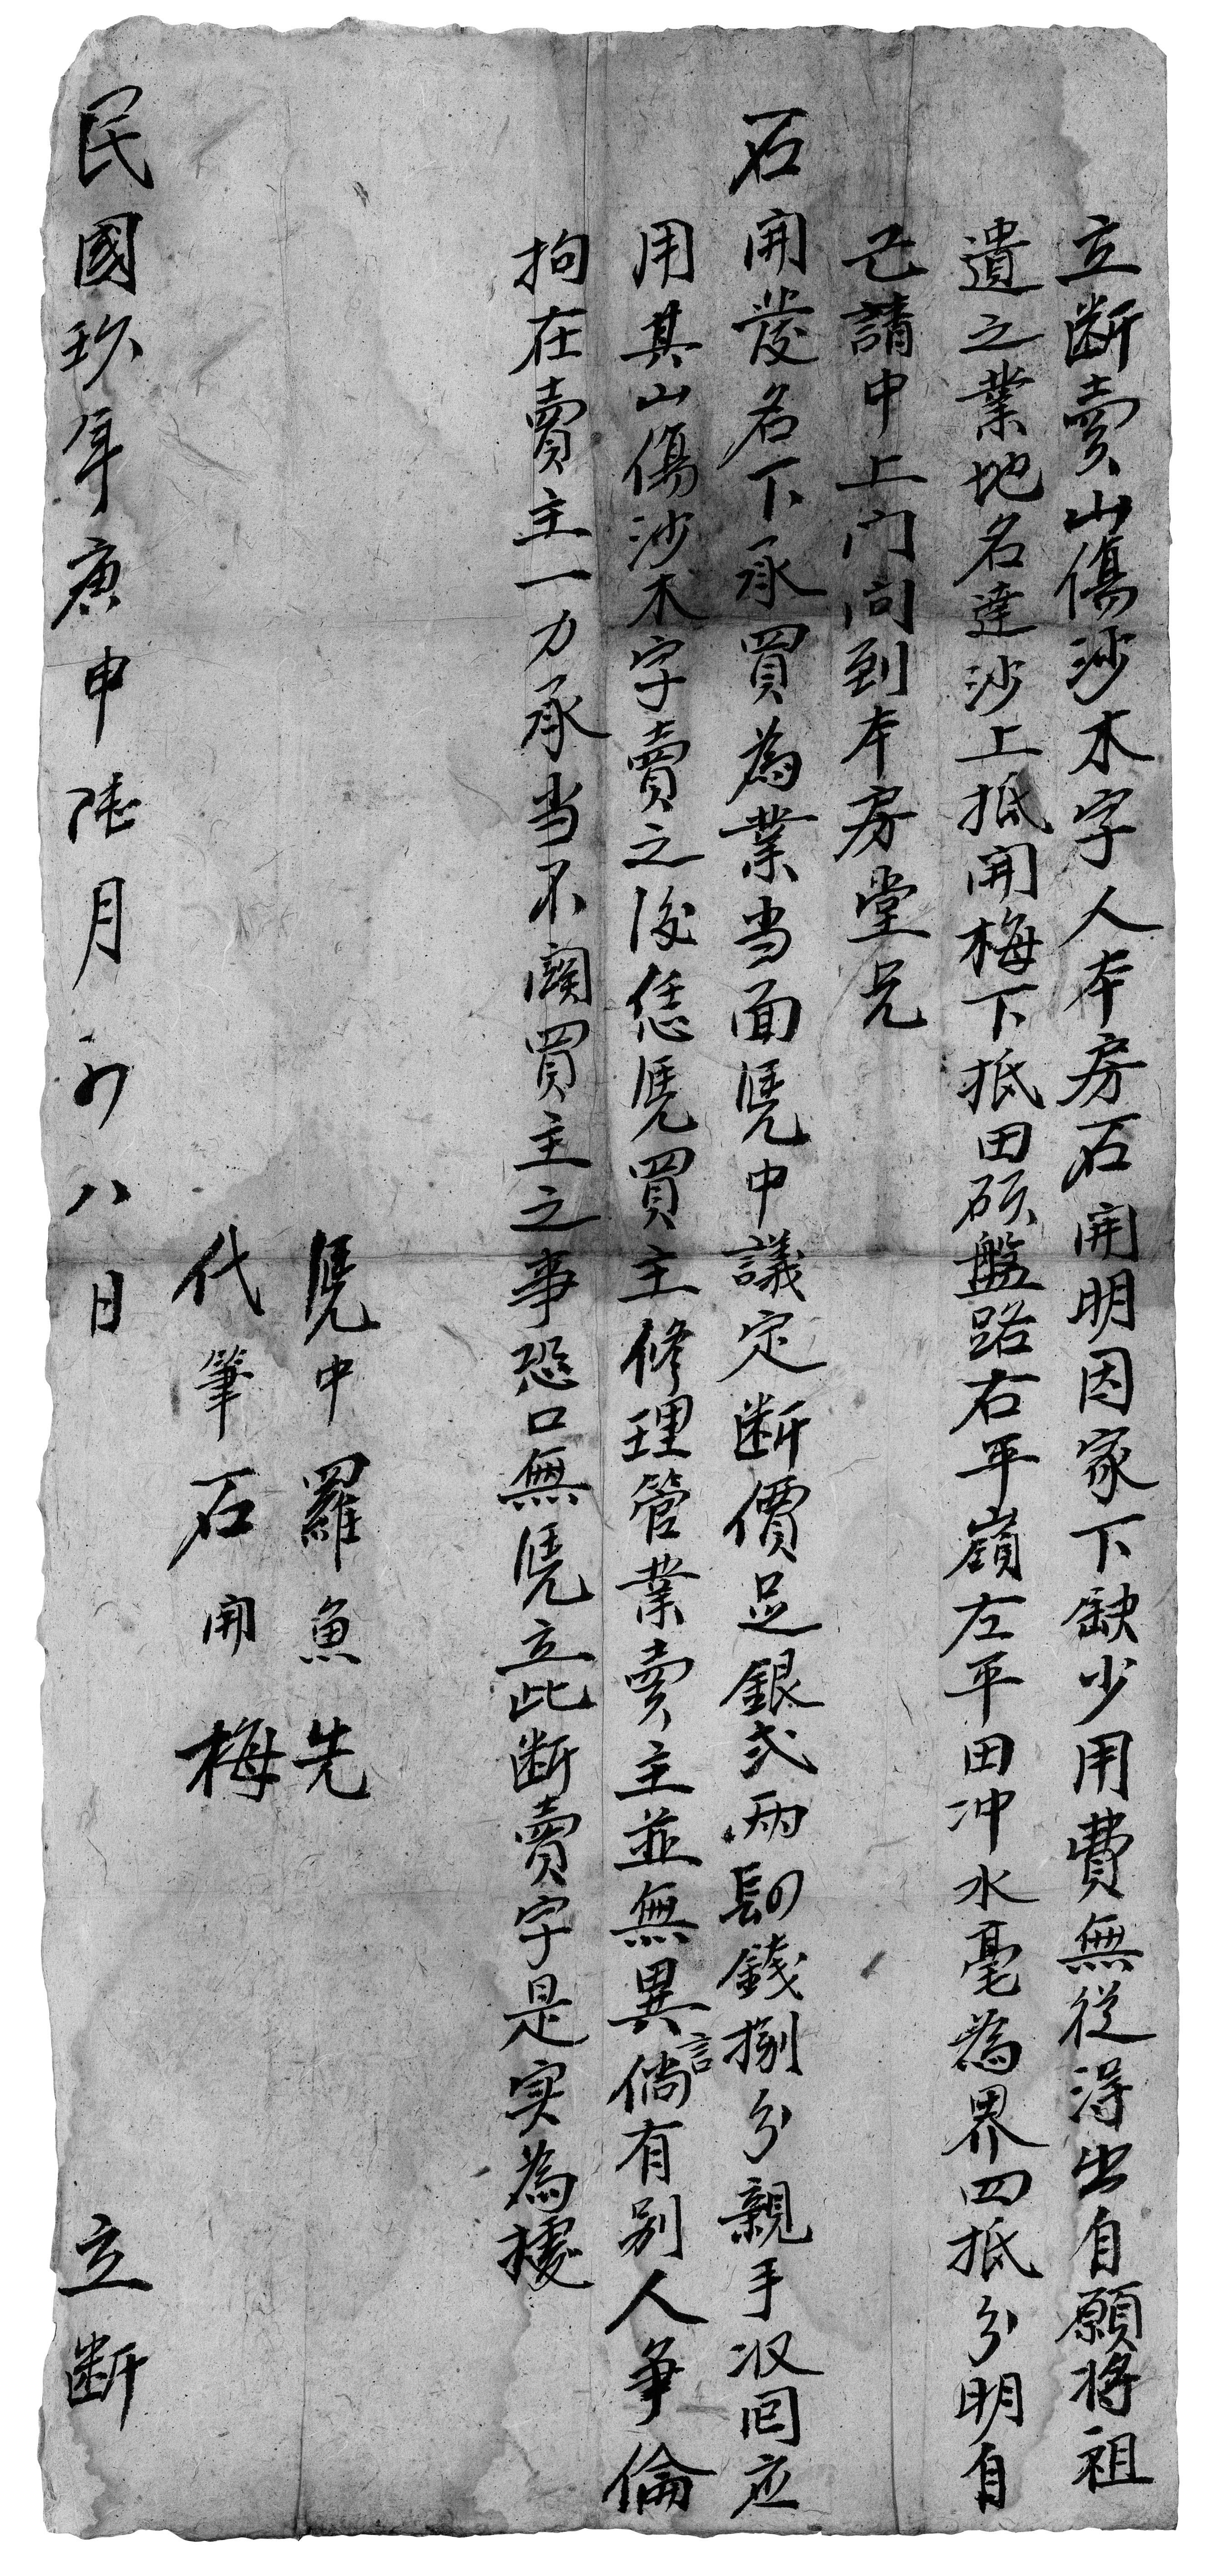 立断賣山傷沙木字人本房石開明因家下缺少用費無從淂出自願將祖
遺之業地名達沙上抵開梅下抵田砍盤路右平嶺左平田冲水毫為界四抵分明自
己請中上门问到本房堂兄
石開發名下承買為業当面凴中議定断價足銀弍両四錢捌分親手収回应
用其山傷沙木字賣之後恁凴買主修理管業賣主並無異言倘有别人争倫
拘在賣主一力承当不関買主之事恐口無凴立此断賣字是实為據
凴中羅魚先
代筆石開梅
民國玖年庚申陆月初八日 立断